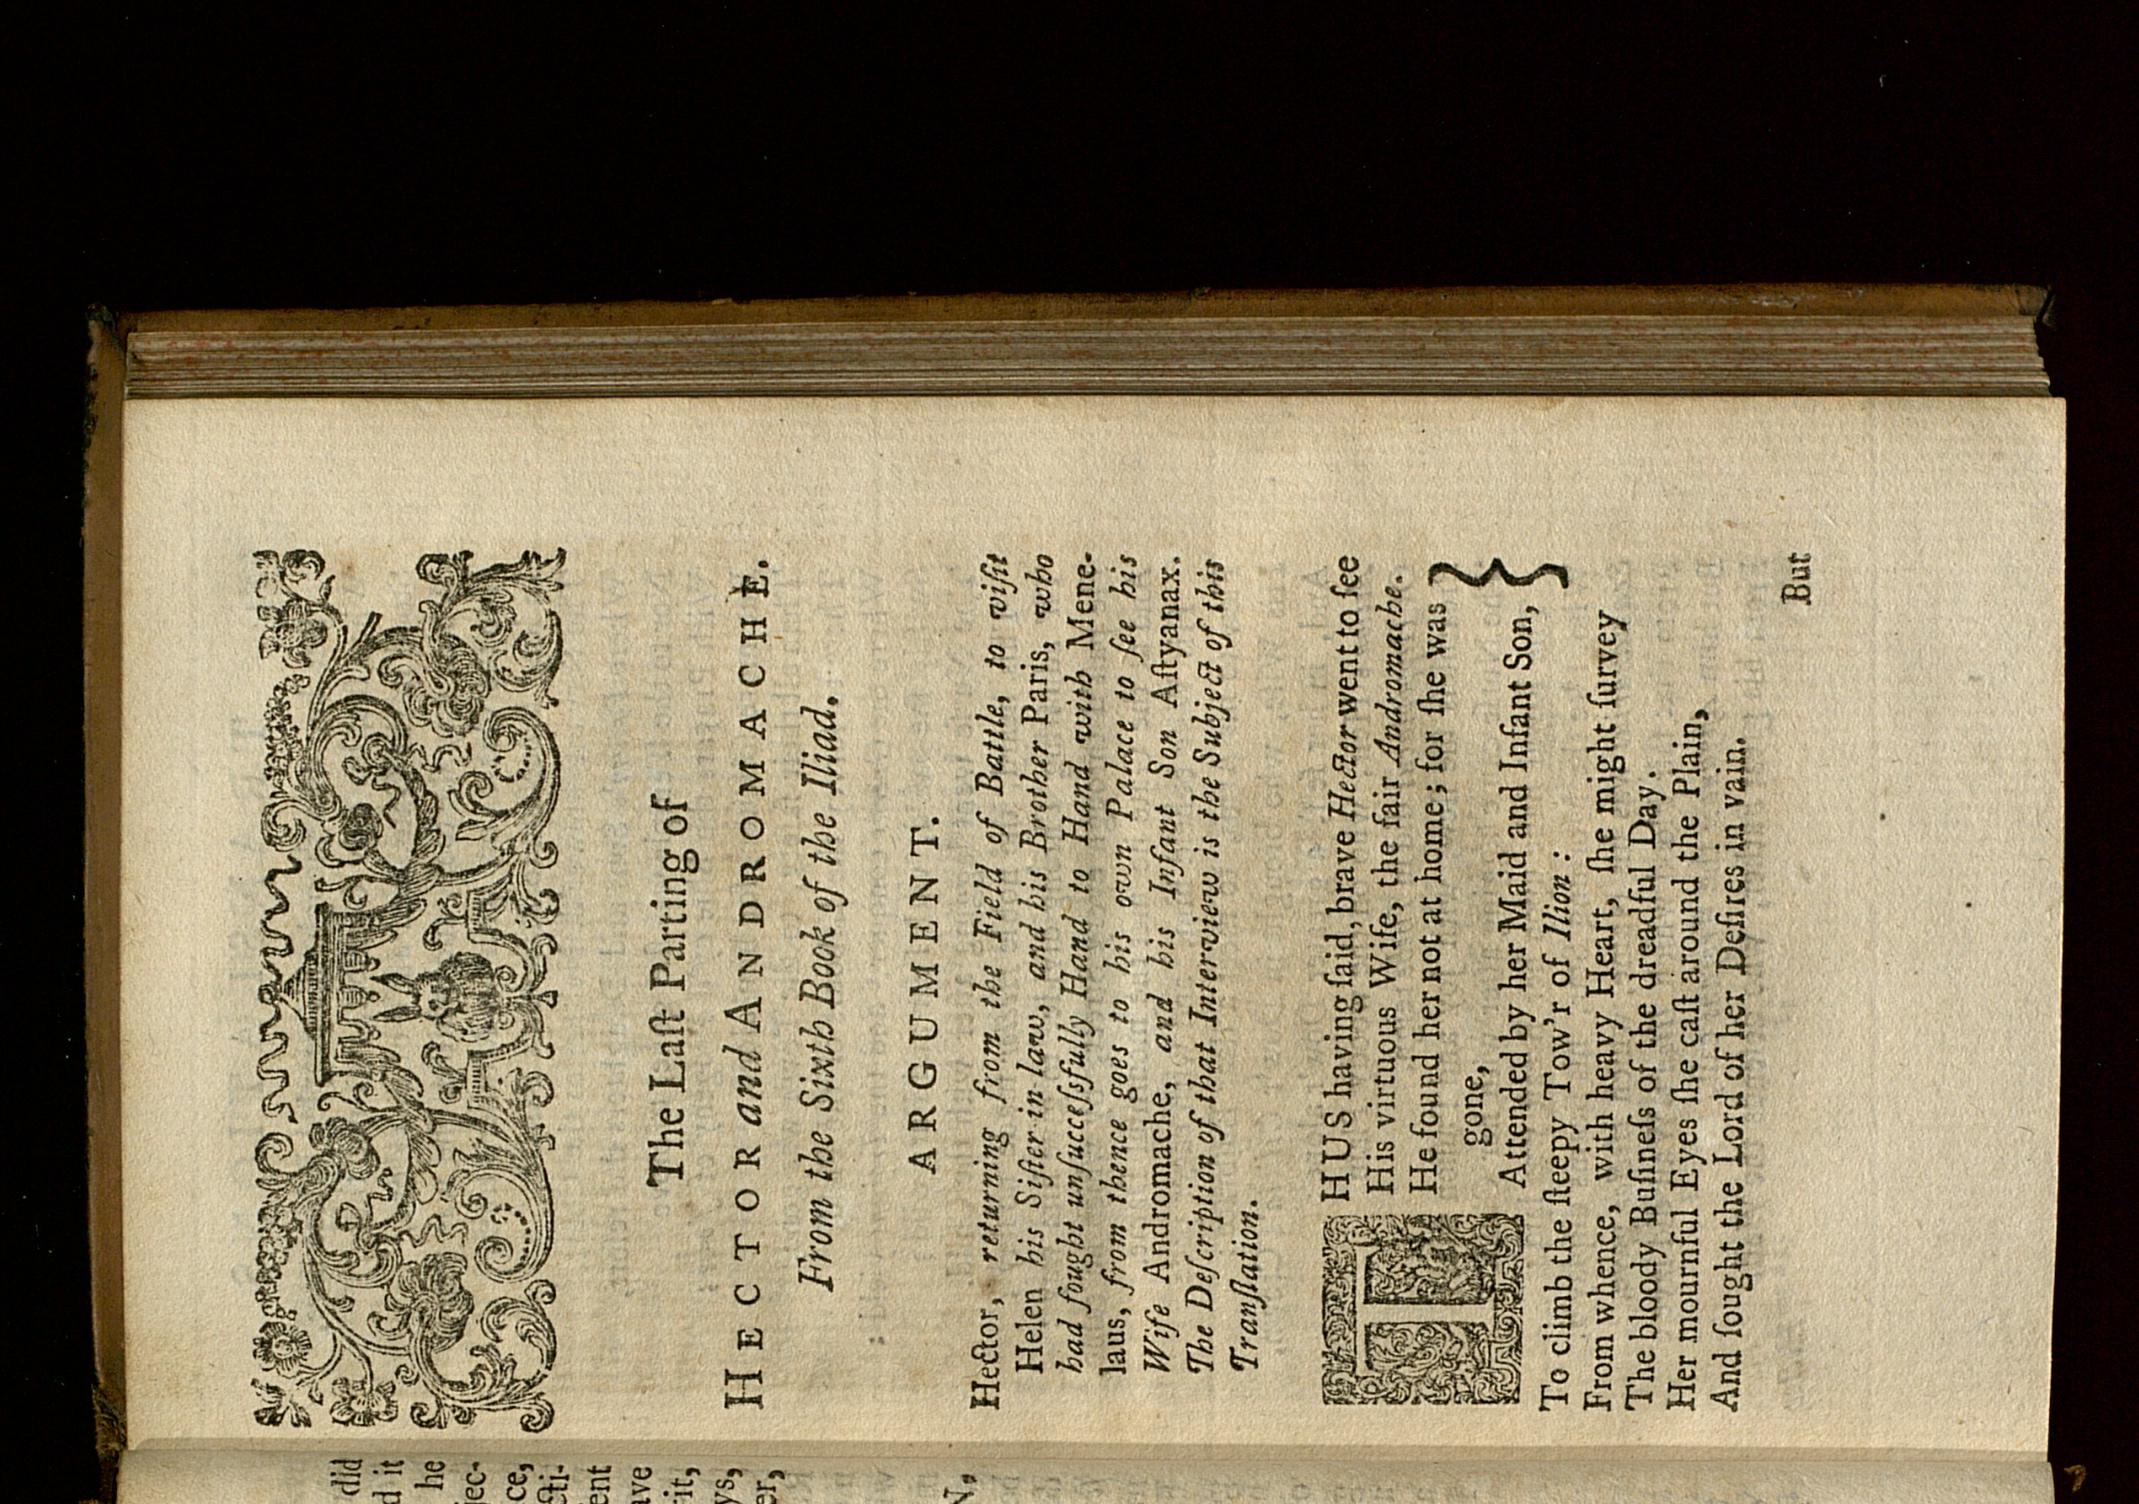 The Laſt Parting of
HECTOR and ANDROMACHE.
From the Sixth Book of the Iliad.
ARGUMENT.
Hector, returning from the Field of Battle, to viſit
Helen his Siſter in law, and his Brother Paris, who
had fought unſucceſsfully Hand to Hand with Mene-
laus, from thence goes to his own Palace to ſee his
Wife Andromache, and his Infant Son Aſtyanax.
The Deſcription of that Interview is the Subject of this
Tranſlation.
THUS having ſaid, brave Hector went to ſee
His virtuous Wife, the fair Andromache.
He found her not at home; for ſhe was
gone,
Attended by her Maid and Infant Son,
To climb the ſteepy Tow'r of Ilion:
From whence, with heavy Heart, ſhe might ſurvey
The bloody Buſineſs of the dreadful Day.
Her mournful Eyes ſhe caſt around the Plain,
And ſought the Lord of her Deſires in vain.
But
did
d it
he
jec-
ce,
cti-
ent
ave
rit,
ys,
er,
N,